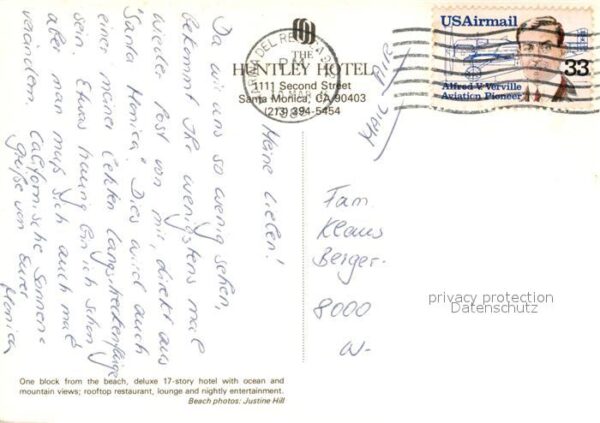 THE
HUNTLEY HOTEL
1111 Second Street
Santa Monica, CA 90403
(213) 394-5454
USAirmail
33
Alfred V. Verville
Aviation Pioneer
MARINA DEL REY
PM
MAR
Meine Lieben!
Da wir uns so wenig sehen,
bekommt Ihr wenigstens mal
wieder Post von mir, direkt aus
"Santa Monica". Dies wird auch
einer meiner letzten Langstreckenflüge
sein. Etwas traurig bin ich schon
aber man muß sich auch mal
verändern.
Californische Sonnen-
grüße von Eurer
Monica
Fam
Klaus
Berger
8000
privacy protection
Datenschutz
One block from the beach, deluxe 17-story hotel with ocean and
mountain views; rooftop restaurant, lounge and nightly entertainment.
Beach photos: Justine Hill